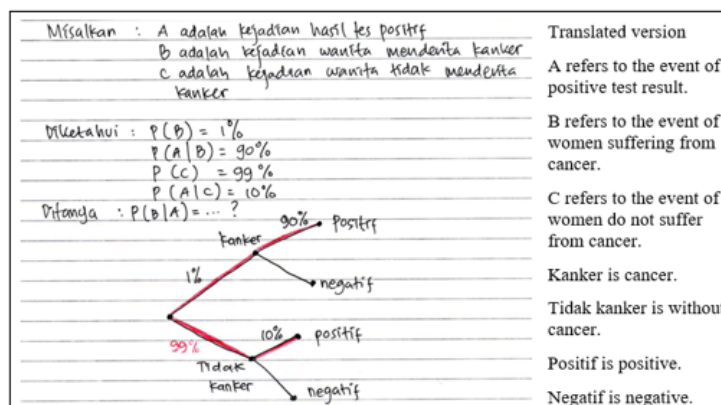 Misalkan : A adalah kejadian hasil tes positif
B adalah kejadian wanita menderita kanker
C adalah kejadian wanita tidak menderita
kanker
Diketahui : P(B) = 1%
P(A|B) = 90%
P(C) = 99%
P(A|C) = 10%
Ditanya : P(B|A) = ... ?
90%
positif
kanker
1%
negatif
99%
10%
positif
Tidak
kanker
negatif
Translated version
A refers to the event of
positive test result.
B refers to the event of
women suffering from
cancer.
C refers to the event of
women do not suffer
from cancer.
Kanker is cancer.
Tidak kanker is without
cancer.
Positif is positive.
Negatif is negative.